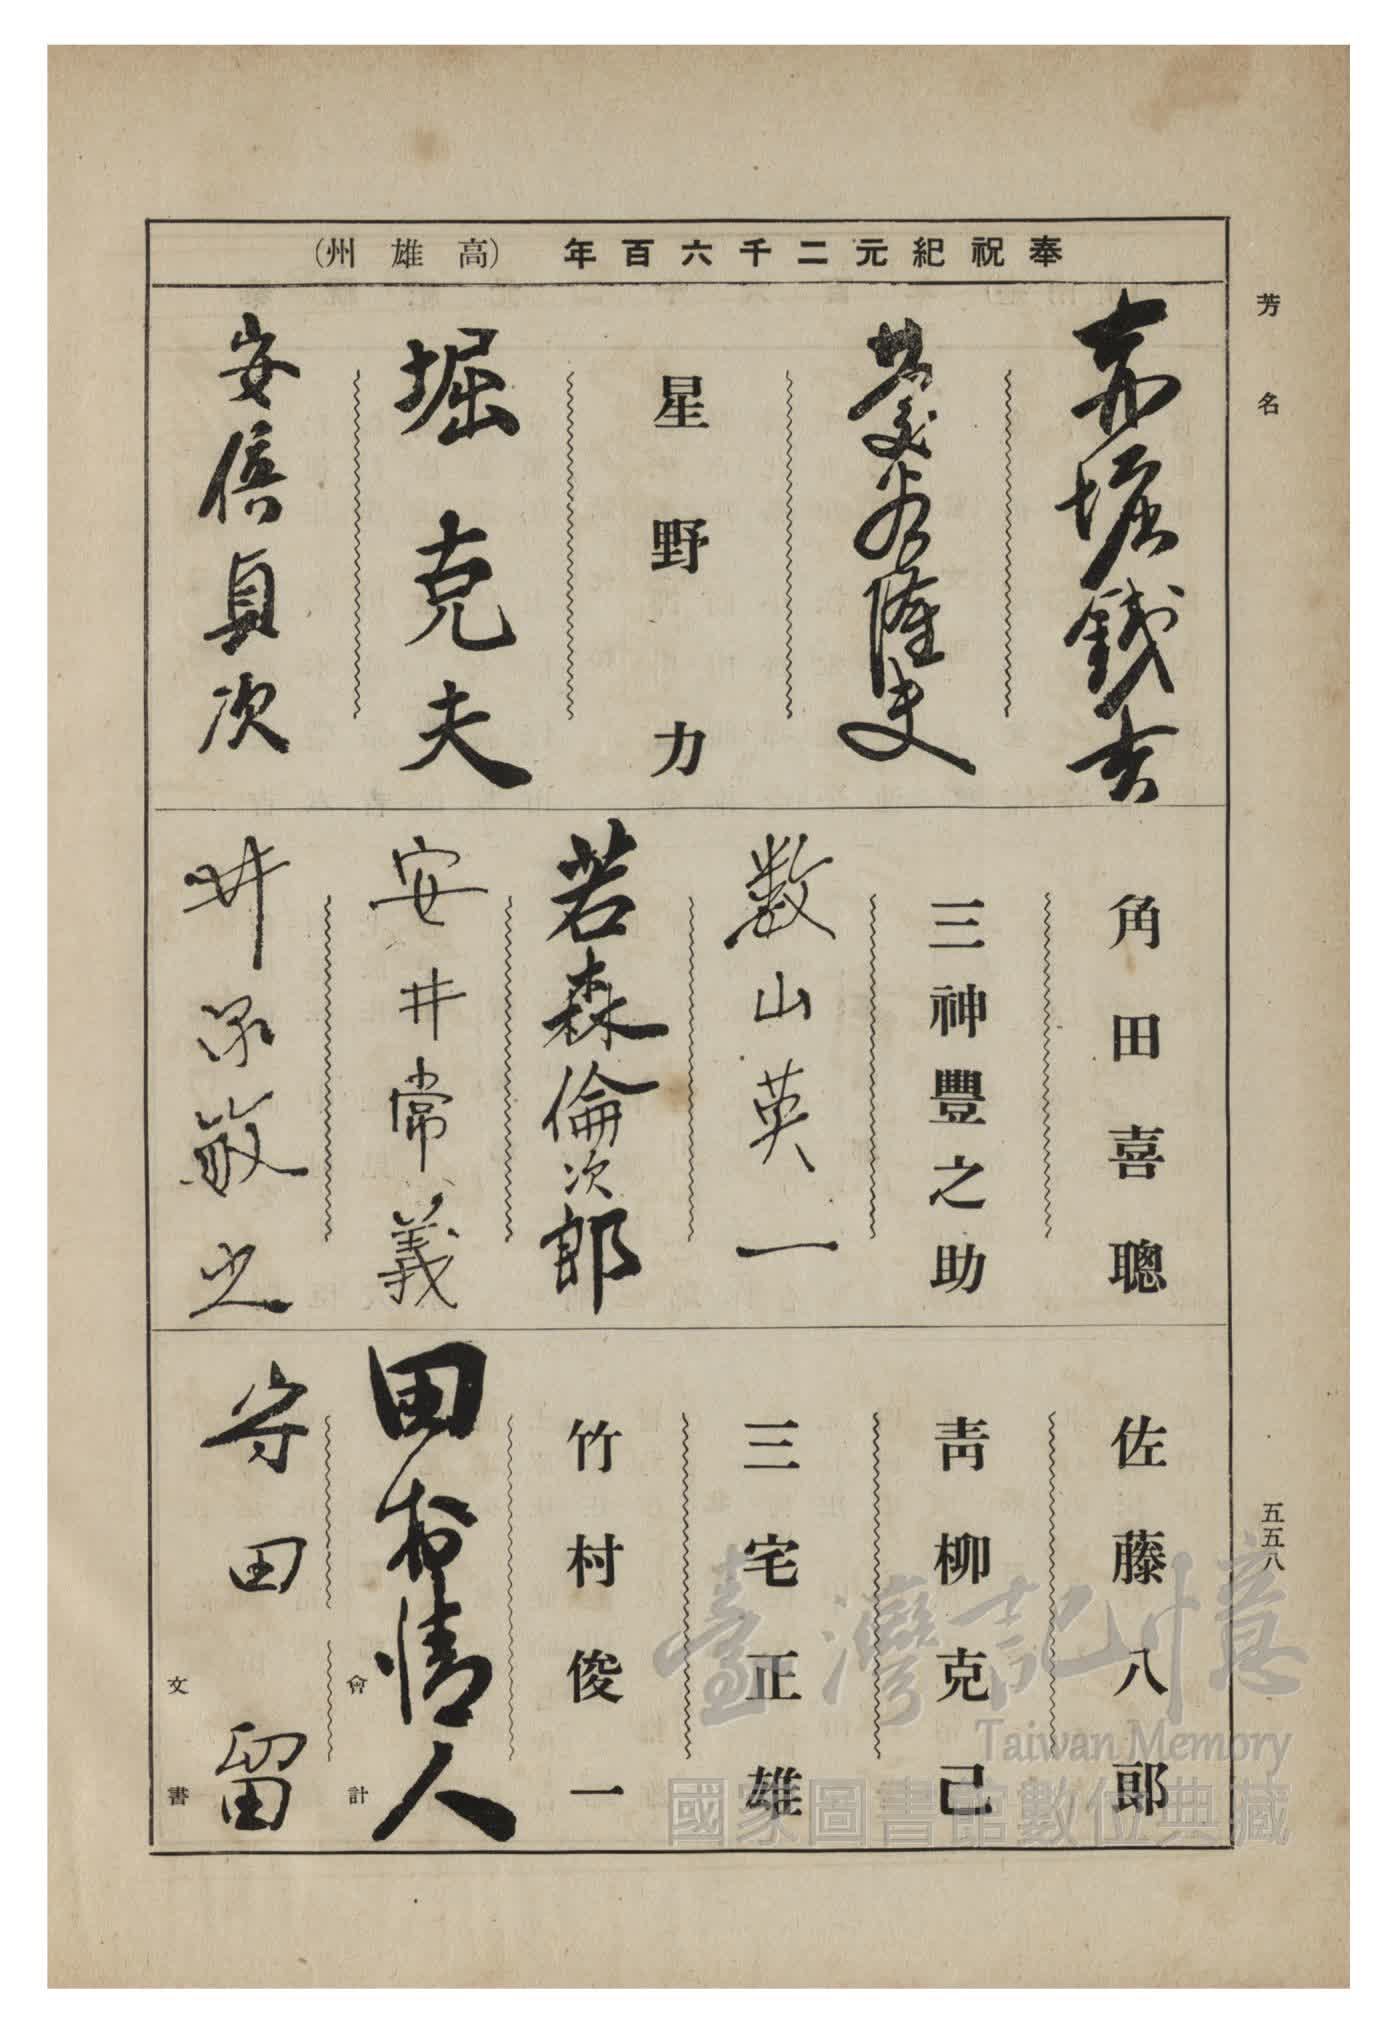 芳名
五五八
奉祝紀元二千六百年(高雄州)
赤堀鐵吉
星野力
堀克夫
安信貞次
角田喜聰
三神豐之助
数山英一
若森倫次郎
安井常義
井敏之
佐藤八郎
靑柳克己
三宅正雄
竹村俊一
田村情人
會計
守田留
文書
臺灣記憶
Taiwan Memory
國家圖書館數位典藏